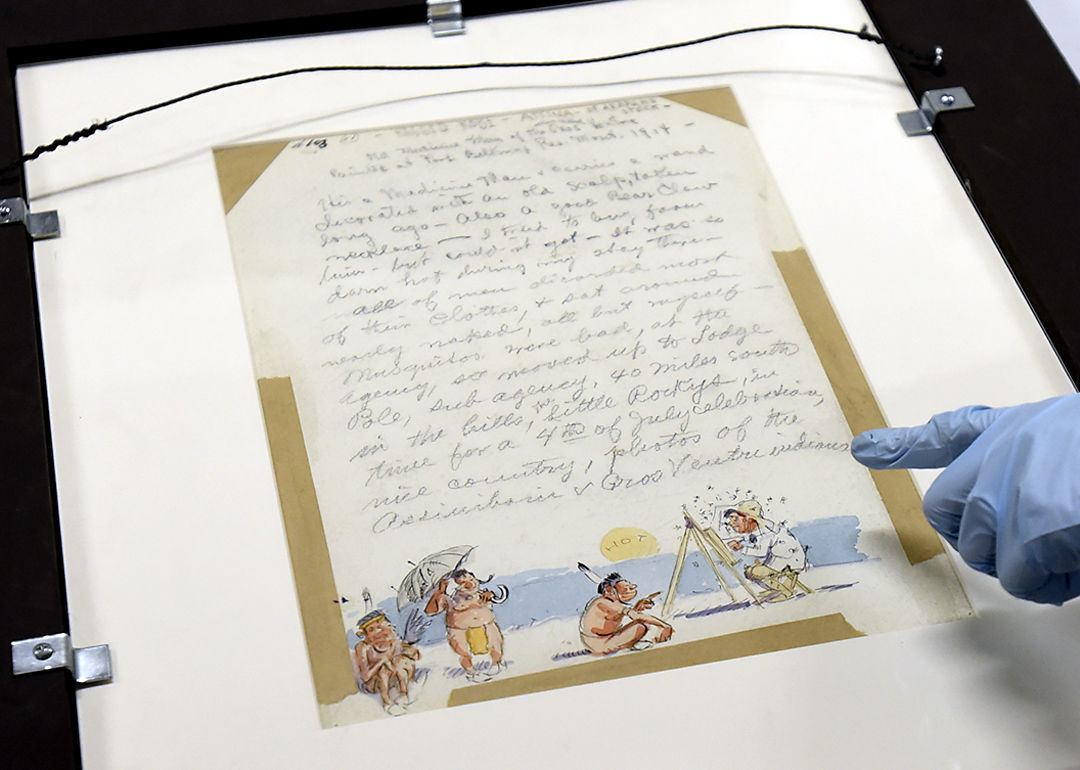 Old Medicine Man of the Gros Ventre
Painted at Fort Belknap Res. Mont. 1914 -
He's a Medicine Man & carries a wand
decorated with an old scalp, taken
long ago - Also a good Bear Claw
necklace - I tried to buy, from
him - but could n't get - It was so
darn hot during my stay there -
all of men discarded most
of their clothes, & sat around
nearly naked, all but myself -
Mosquitos were bad, at the
agency, so moved up to Lodge
Pole, sub agency, 40 miles south
in the hills, Little Rockys, in
time for a 4th of July celebration,
nice country, photos of the
Assiniboin & Gros Ventre indians
HOT